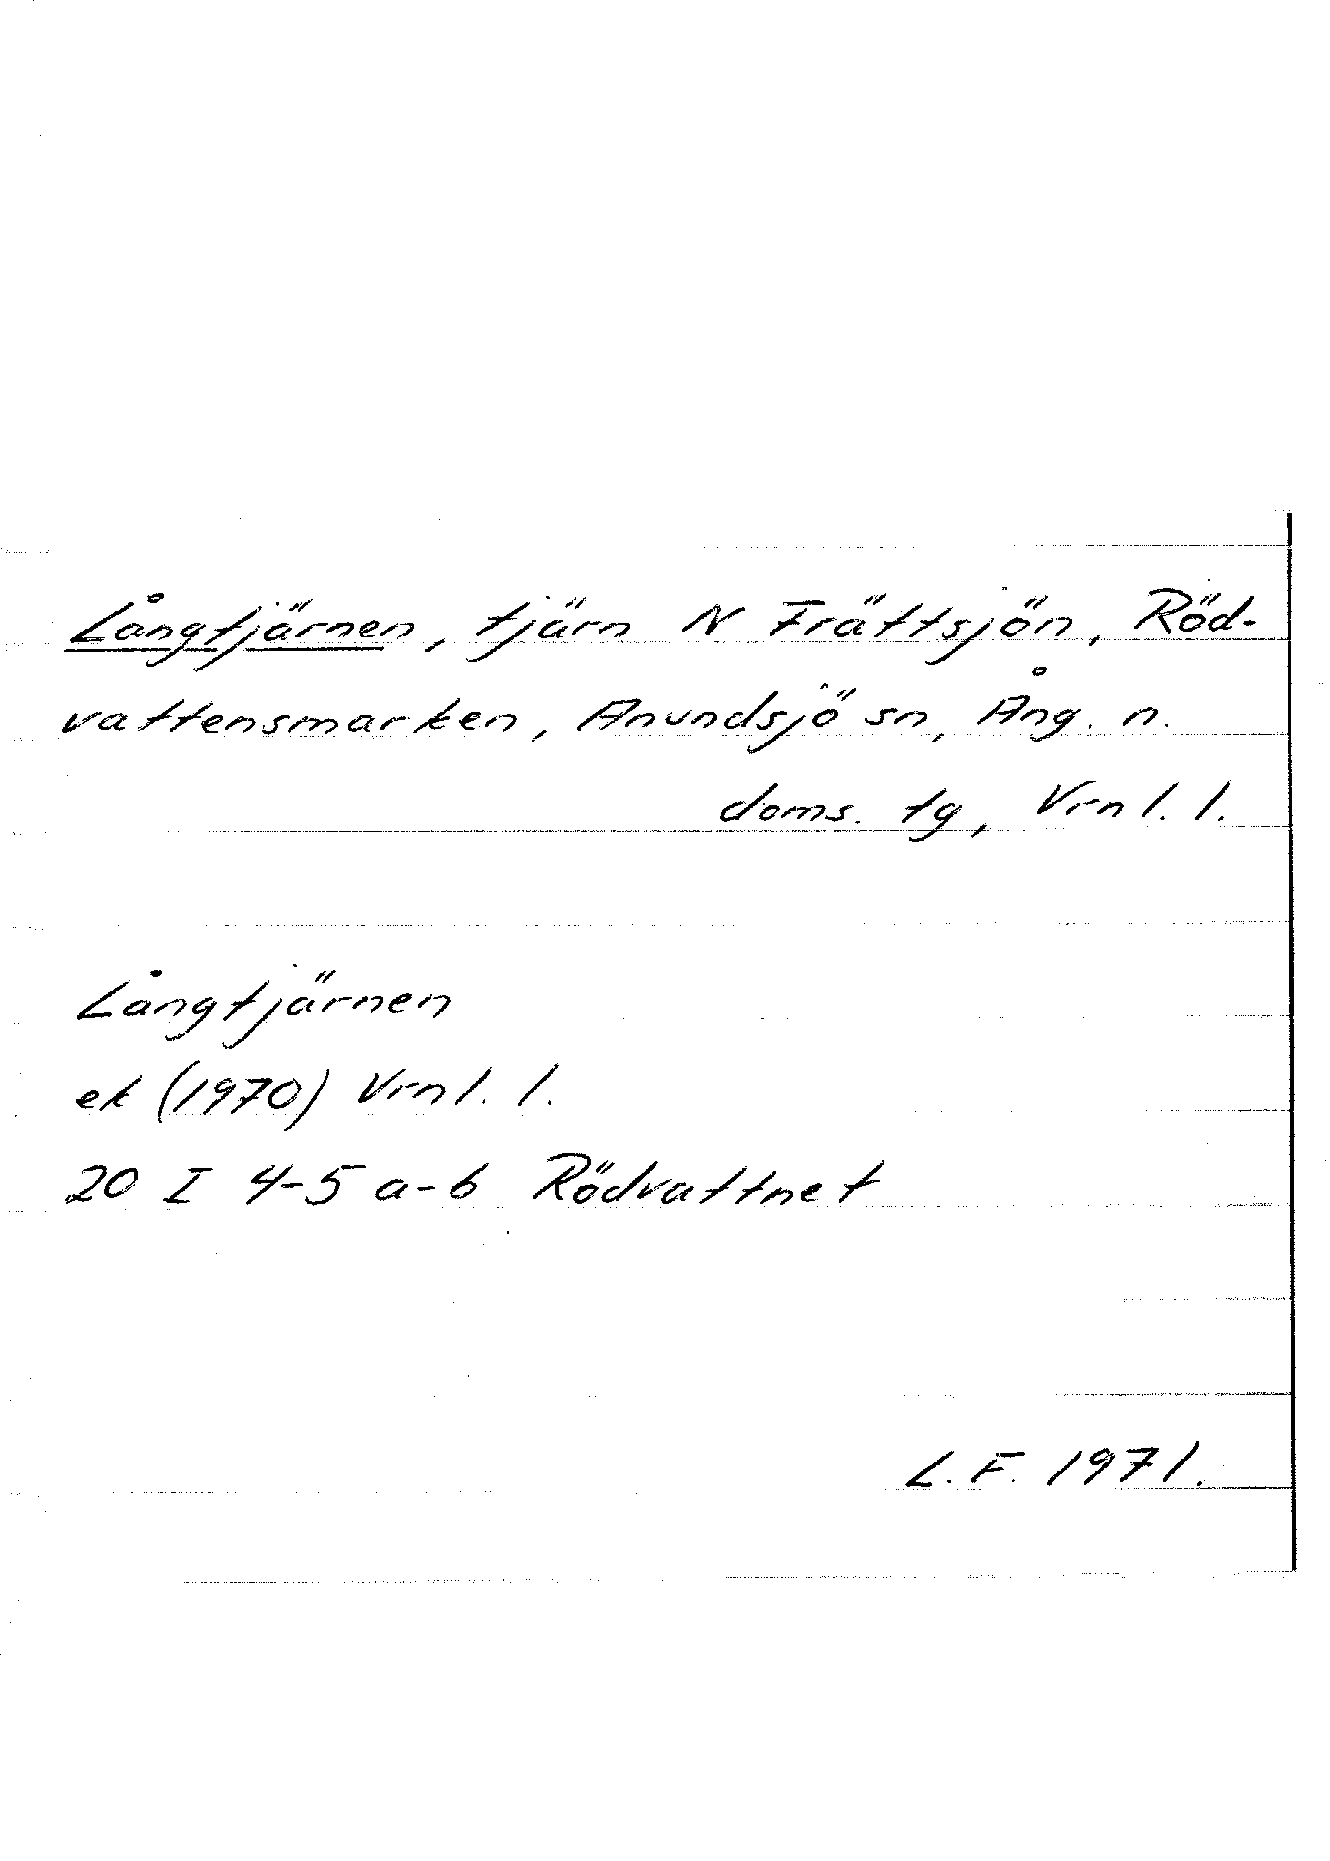 Långtjärnen, tjärn N Frättsjön, Röd-
vattensmarken, Anundsjö sn, Ång. n.
doms. tg, Vrnl. l.
Långtjärnen
ek (1970) Vrnl. l.
20 I 4-5 a-b Rödvattnet
L.F. 1971.